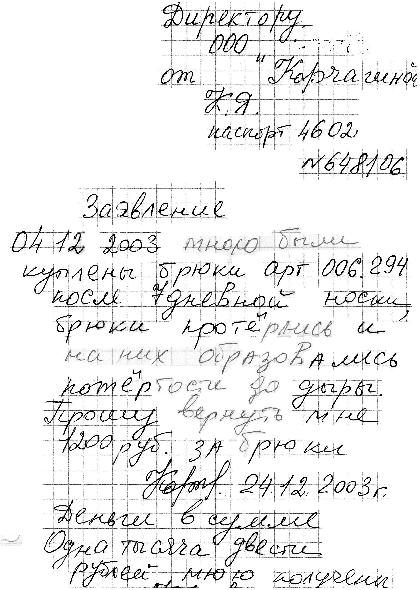 Директору
ООО
от "Корчагиной
К.Я.
паспорт 4602
№648106
Заявление
04 12 2003 мною были
куплены брюки арт 006.294
после 7дневной носки,
брюки протёрлись и
на них образовались
потёртости до дыры.
Прошу вернуть мне
1200 руб. за брюки
24.12.2003г.
Деньги в сумме
Одна тысяча двести
рублей мною получены